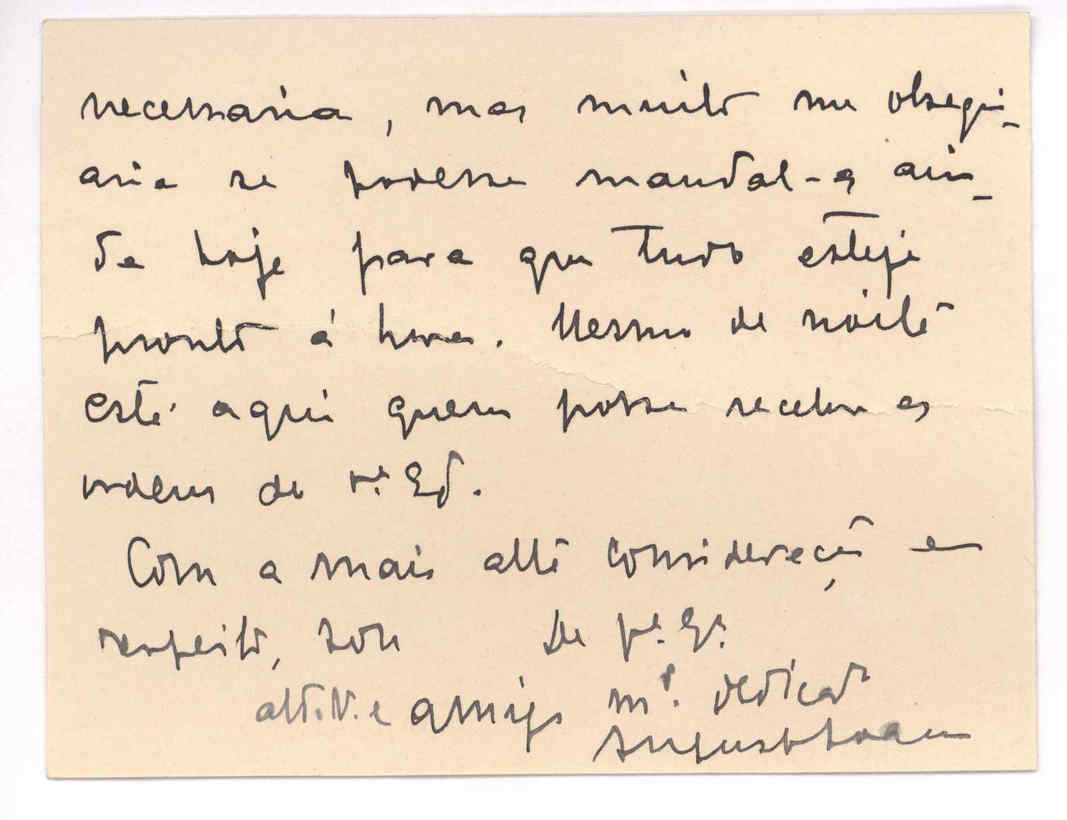 necessaria, mas muito me obsequi-
aria se podesse mandal-a ain-
da hoje para que tudo esteja
pronto á hora. Mesmo de noite
está aqui quem possa receber as
ordens de V.ª Ex.ª
Com a mais alta consideração e
respeito, sou De V.ª Ex.ª
att.º V.e amigo m.to dedicado
Augusto Soares